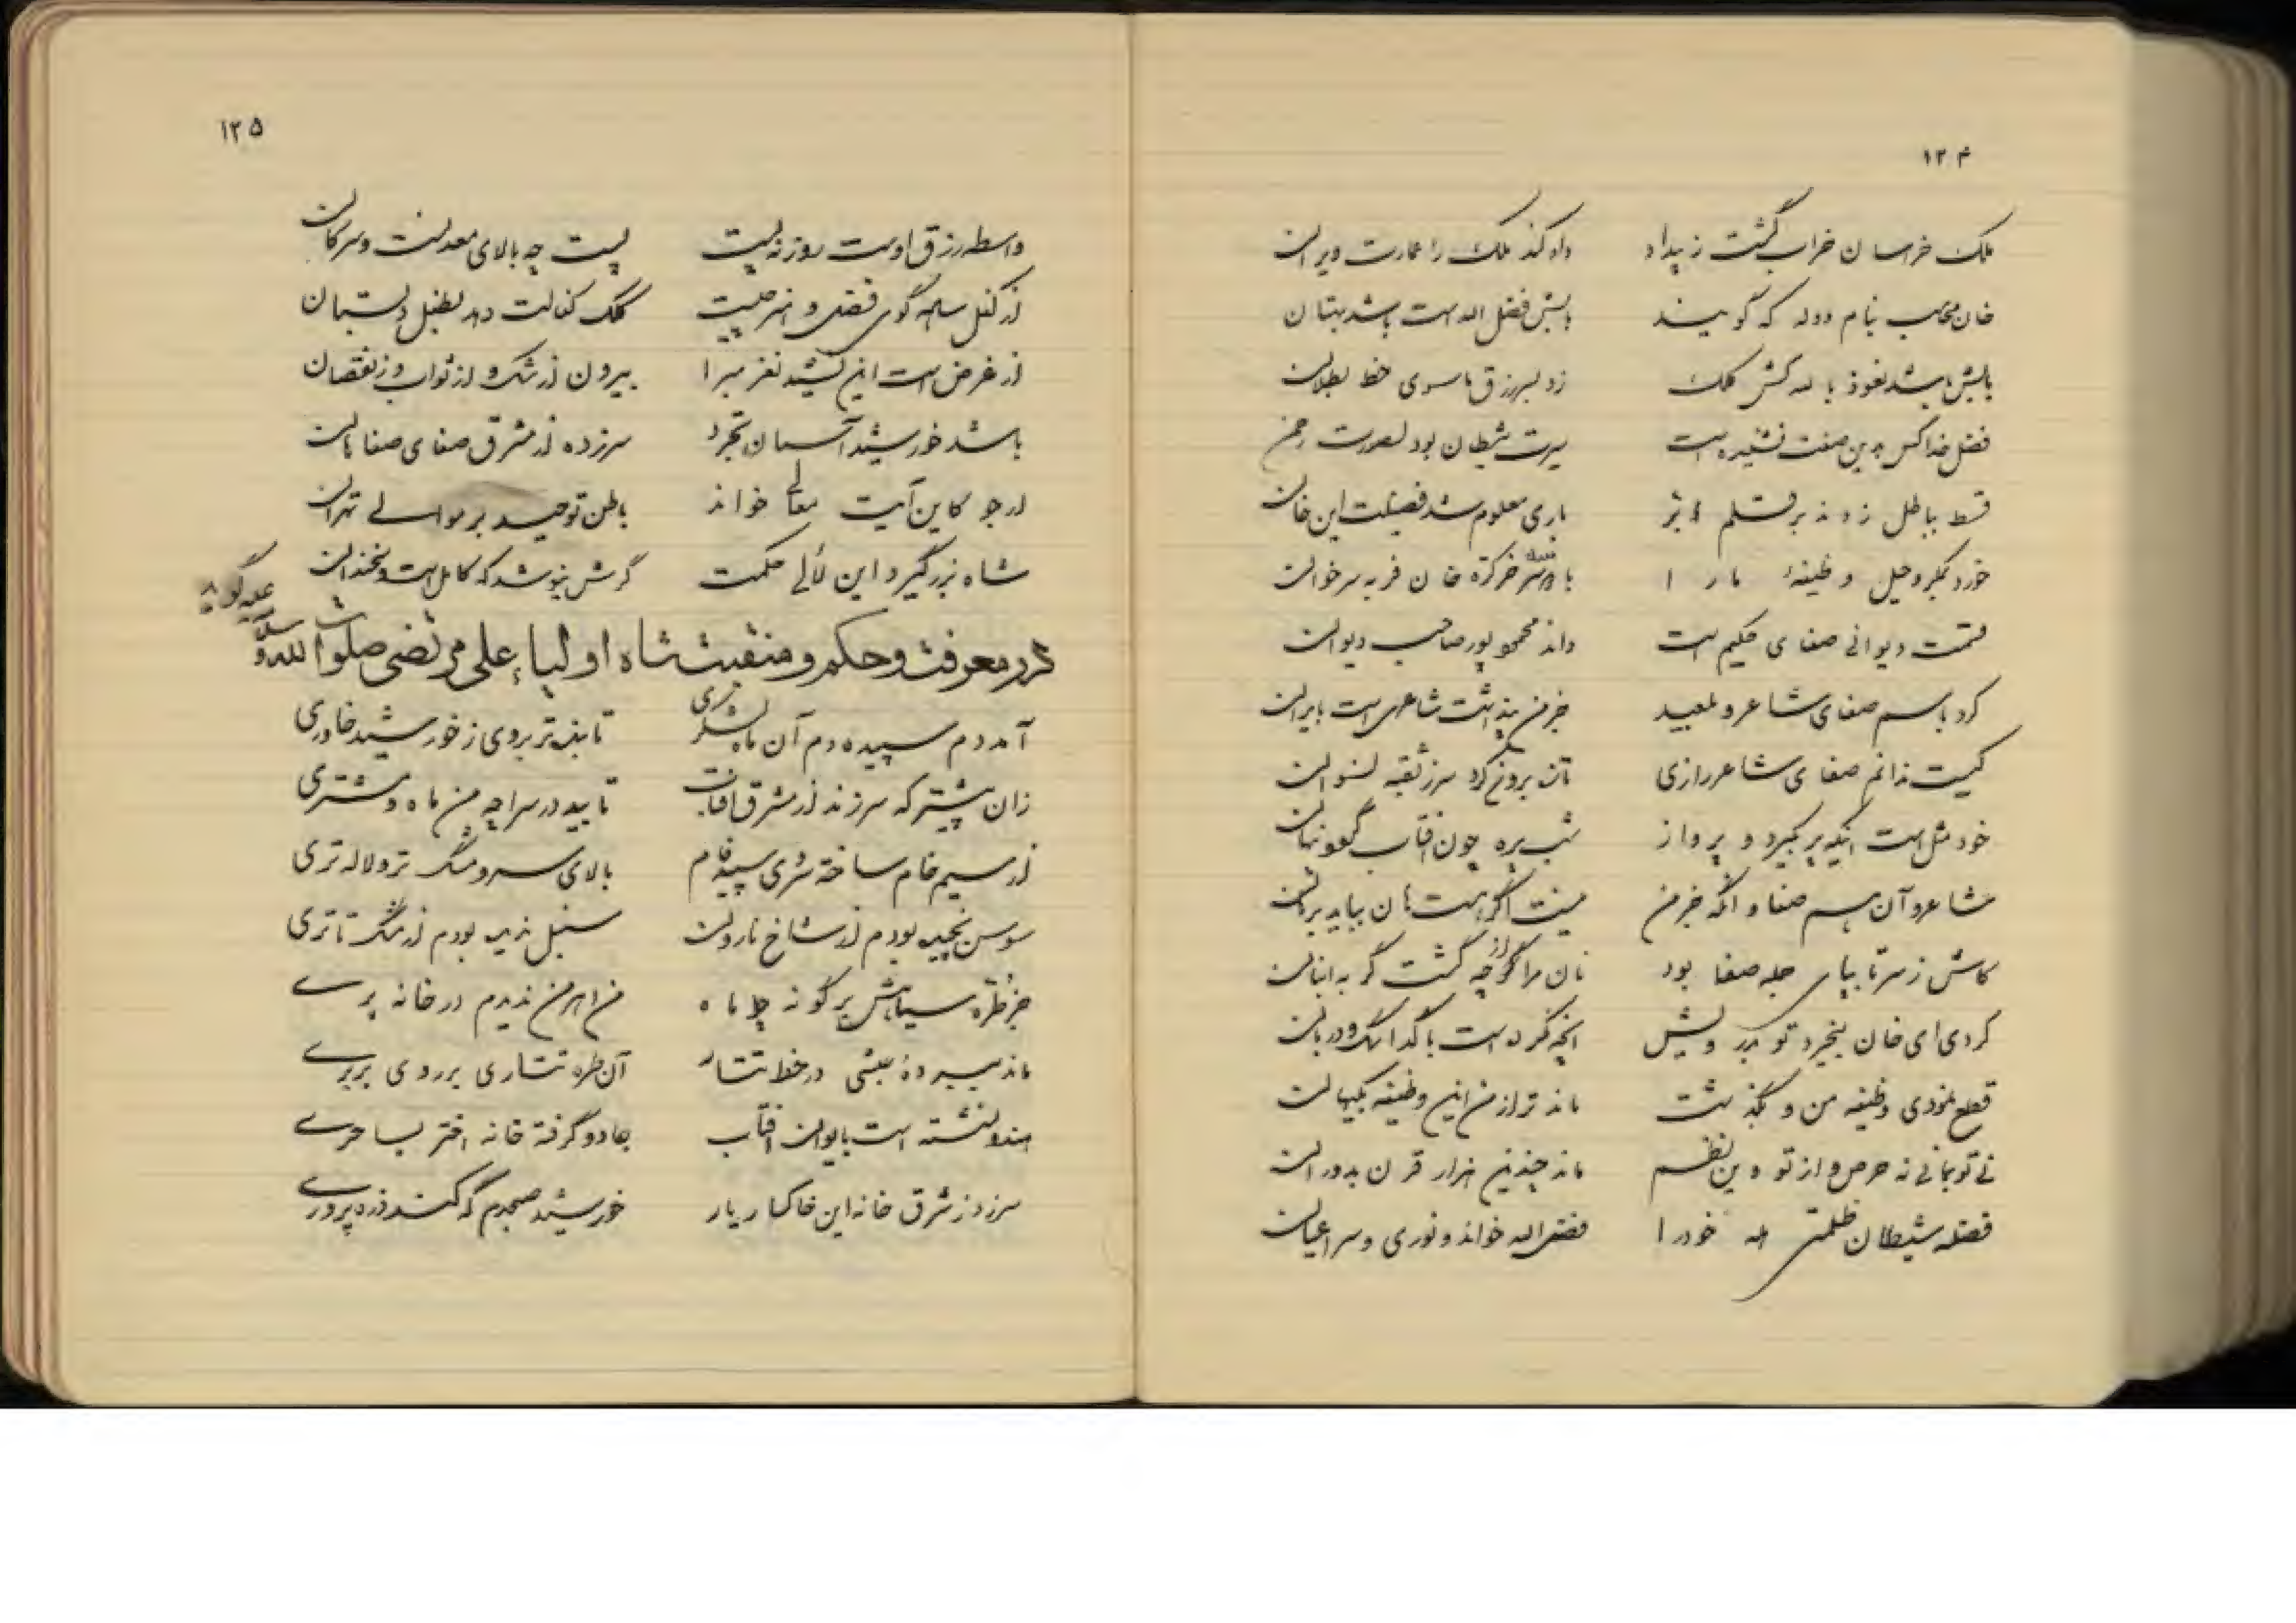 ۱۲۴
ملک خراسان خراب گشت ز بیداد داد کند ملک را عمارت ویران
خان محاسب بنام دوله که گویند باشش فضل الله است باشد بهتان
باشش باشد نعوذ بالله کش کلک زد بسر رزق ماسوی خط بطلان
فضل خدا کس بدین صفت نشنیده است سیرت شیطان بود بصورت رحمن
قسط بباطل زدند بر قسلم باری معلوم شد فضیلت این خان
خورد بمکر و حیل وظیفهٔ ما را با خرکره خان فربه سر خوان
قسمت دیوانی صفای حکیم است داند محمود پور صاحب دیوان
کرد باسم صفای شاعر و جز من پنداشت شاعری است بایران
کیست ندانم صفای شاعر رازی
خود مثل است اینکه پر بگیرد و پرواز شب پره چون افتاب گونهان
شاعر و آن هم صفا و آنگه جز من نیست اگر هست هان بیاید
کاش ز سر تا بپای جمله صفا بود نان مرا از چه گشت گربه انبان
کردی ای خان بیخبر تو بدرویش آنچه نکرده است با گدا سگ دربان
قطع نمودی وظیفه من و بگذشت ماند ترا از من این وظیفه
نی تو بمانی نه حرص و از تو وین نظم ماند چندین هزار قرن بدوران
فضله شیطان ظلمتی همه خود را فضل الله خواند و نوری و سر اعیان
۱۲۵
واسطه رزق اوست روزنه نیست پست چه بالای معدلت
از غرض است این نشید نغز مبرا بیرون از شک و از ثواب و ز نقصان
باشد خورشید آسمان تجرد سرزده از مشرق صفای صفاهان
ارجو کاین آیت معالی خواند باطن توحید بر موالی تهران
شاه بزرگ گیرد این لألی حکمت گرش بنوشد که کامل است و سخندان
در معرفت و حکم و منقبت شاه اولیاء علی مرتضی صلوات الله و سلامه علیه گوید
آمد دم سپیده دم آن ماه لشگری تابنده تر بروی ز خورشید خاوری
زان پیشتر که سر زند از مشرق افتاب تابید در سراچه من ماه و مشتری
از سیم خام ساخته سپید فام بالای سرو مشگ تر و لاله تری
سوسن نچیده بودم از شاخ نارون سنبل ندیده بودم از مشگ تاتری
جز طره سیاهش بر گونه چو ماه من اهرمن ندیدم در خانه پری
ماند بسر دهٔ حبشی در خط تتار آن طره تتاری بر روی بربری
هندو نشسته است بایوان افتاب جادو گرفته خانه اختر بساحری
سر زد ز شرق خانه این خاکسار یار خورشید صبحدم که کند ذره پروری